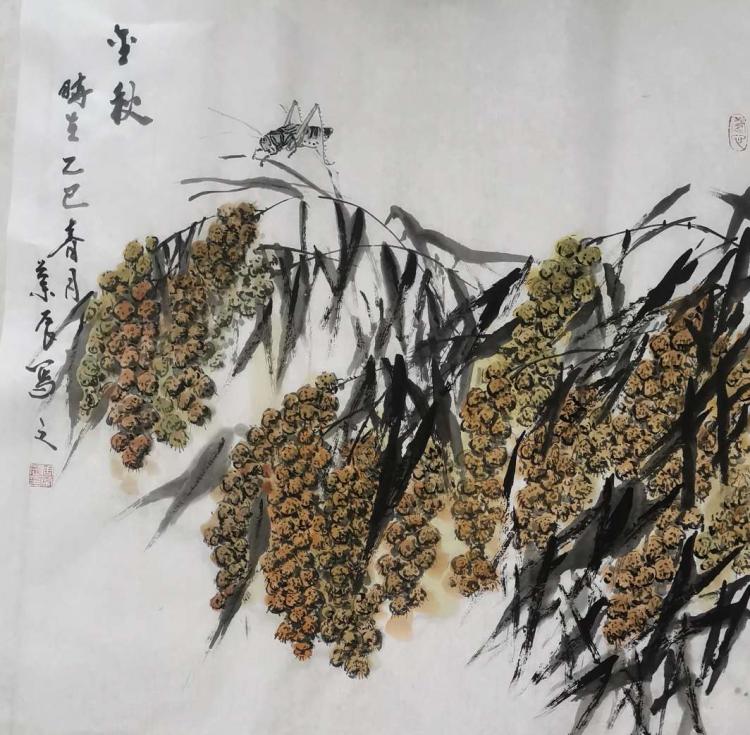 金秋
時在乙巳春月
景辰寫之